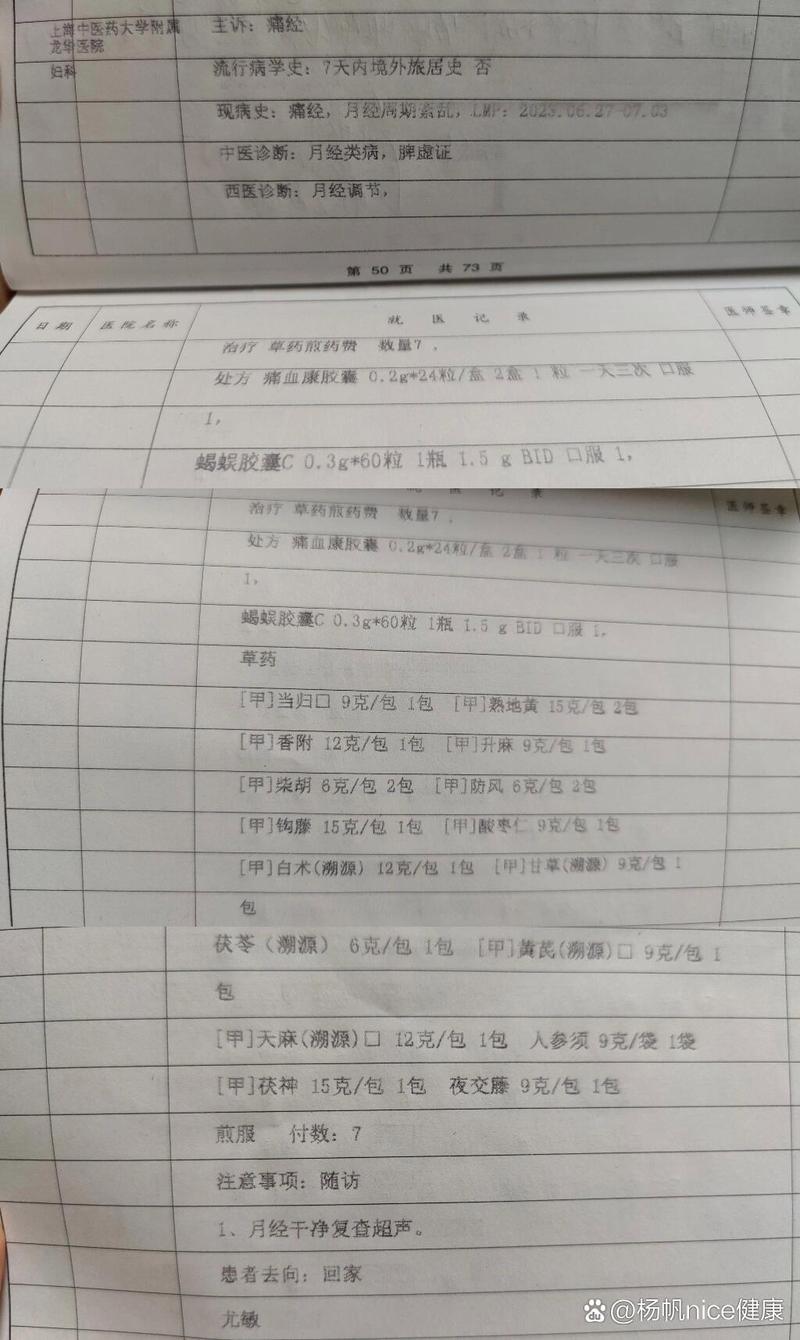 上海中医药大学附属
龙华医院
妇科
主诉：痛经
流行病学史：7天内境外旅居史 否
现病史：痛经，月经周期紊乱，LMP：2023.06.27-07.03
中医诊断：月经类病，脾虚证
西医诊断：月经调节，
第 50 页 共 73 页
日期 医院名称 就医记录 医师签章
治疗 草药煎药费 数量7，
处方 痛血康胶囊 0.2g*24粒/盒 2盒 1 粒 一天三次 口服
1，
蝎蜈胶囊C 0.3g*60粒 1瓶 1.5 g BID 口服 1，
就医记录 医师签章
治疗 草药煎药费 数量7，
处方 痛血康胶囊 0.2g*24粒/盒 2盒 1 粒 一天三次 口服
1，
蝎蜈胶囊C 0.3g*60粒 1瓶 1.5 g BID 口服 1，
草药
[甲]当归□ 9克/包 1包 [甲]熟地黄 15克/包 2包
[甲]香附 12克/包 1包 [甲]升麻 9克/包 1包
[甲]柴胡 6克/包 2包 [甲]防风 6克/包 2包
[甲]钩藤 15克/包 1包 [甲]酸枣仁 9克/包 1包
[甲]白术(溯源) 12克/包 1包 [甲]甘草(溯源) 9克/包 1
包
茯苓（溯源） 6克/包 1包 [甲]黄芪(溯源)□ 9克/包 1
包
[甲]天麻(溯源)□ 12克/包 1包 人参须 9克/袋 1袋
[甲]茯神 15克/包 1包 夜交藤 9克/包 1包
煎服 付数：7
注意事项：随访
1、月经干净复查超声。
患者去向：回家
尤敏
@杨帆nice健康